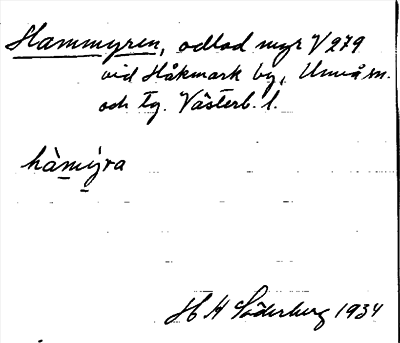 Hammyren, odlad myr V 279
vid Håkmark by, Umeå sn.
och tg. Västerb. l.
hàmýra
H H Söderberg 1934